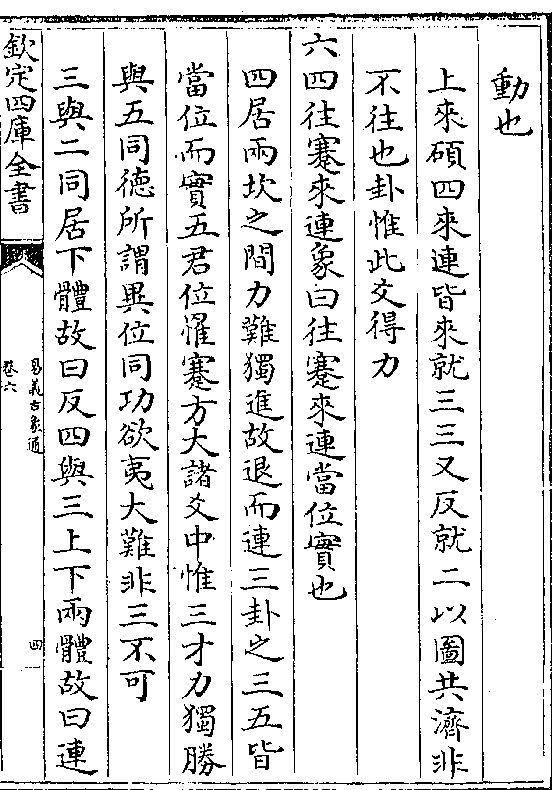 動也
上來碩四來連皆來就三三又反就二以圖共濟非
不往也卦惟此爻得力
六四往蹇來連象曰往蹇來連當位實也
四居兩坎之間力難獨進故退而連三卦之三五皆
當位而實五君位罹蹇方大諸爻中惟三才力獨勝
與五同德所謂異位同功欲夷大難非三不可
三與二同居下體故曰反四與三上下兩體故曰連
欽定四庫全書
易義古象通
卷六
四